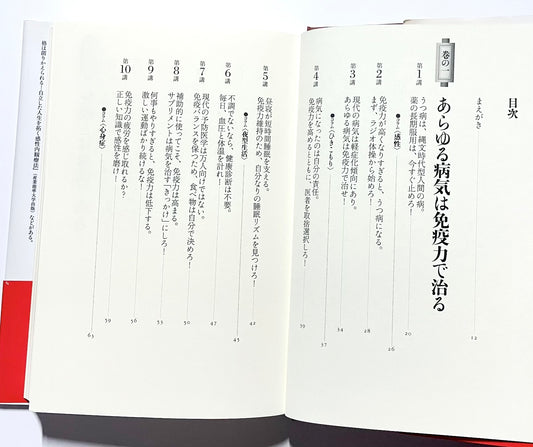 目次
まえがき
12
巻の一
あらゆる病気は免疫力で治る
第1講
うつ病は、縄文時代型人間の病。
薬の長期服用は、今すぐ止めろ!
20
●コラム〈感性〉
26
第2講
免疫力が高くなりすぎると、うつ病になる。
まず、ラジオ体操から始めろ!
28
第3講
現代の病気は軽症化傾向にあり。
あらゆる病気は免疫力で治せ!
34
●コラム〈ひきこもり〉
37
第4講
病気になったのは自分の責任。
免疫力を高めるとともに、医者を取捨選択しろ!
39
第5講
昼寝が短時間睡眠を支える。
免疫力維持のため、自分なりの睡眠リズムを見つけろ!
42
●コラム〈夜型生活〉
45
第6講
不調でないなら、健康診断は不要。
毎日、血圧と体温を計れ!
47
第7講
現代の予防医学は万人向けではない。
免疫力のバランスを保つため、食べ物は自分で決めろ!
50
第8講
補助的に使ってこそ、免疫力は高まる。
サプリメントは病気を治す「きっかけ」にしろ!
53
第9講
何事もやりすぎると、免疫力は低下する。
激しい運動ばかりするな!
56
第10講
免疫力の疲労を感じ取れるか?
正しい知識で感性を磨け!
59
●コラム〈心身症〉
63
などがある。